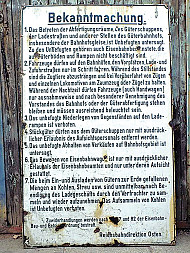 Bekanntmachung.
1. Das Betreten der Abfertigungsräume, des Güterschuppens,
der Ladestraßen und anderer Stellen des Güterbahnhofs,
insbesondere der Bahngleise ist Unbefugten untersagt.
Zu den Unbefugten gehören auch Eisenbahnbedienstete
Güterböden und Rampen nicht beschäftigt sind.
2. Fahrzeuge dürfen auf den Bahnhöfen, den Vorplätzen, Lade- und
Zufuhrstraßen nur im Schritt fahren. Während des Stillstandes
sind die Zugtiere abzusträngen und bei Ungeführheit vor Zügen
und einzelnen Lokomotiven am Zaumzeug oder Zügel zu halten.
Während der Nachtzeit dürfen Fahrzeuge (auch Handwagen)
nur ausnahmsweise und nach besonderer Genehmigung des
Vorstandes des Bahnhofs oder der Güterabfertigung stehen
bleiben und müssen ausreichend beleuchtet sein.
3. Das unbefugte Niederlegen von Gegenständen auf den Lade-
rampen ist verboten.
4. Stückgüter dürfen aus dem Güterschuppen nur mit ausdrück-
licher Erlaubnis des Aufsichtspersonals entfernt werden.
5. Das unbefugte Abhalten von Verkäufen auf Bahnhofsgebiet ist
untersagt.
6. Das Bewegen von Eisenbahnwagen ist nur mit ausdrücklicher
Erlaubnis der Eisenbahnbeamten und nur unter deren Aufsicht
gestattet.
7. Die beim Ein- und Ausladen von Gütern zur Erde gefallenen
Mengen an Kohlen, Streu usw. sind unmittelbar nach Be-
endigung des Ladegeschäfts durch den Verfrachter zu sam-
meln und wieder aufzunehmen. Das Aufsammeln von Kohlen
ist Unbefugten verboten.
Zuwiderhandlungen werden nach und 82 der Eisenbahn-
Bau- und Betriebsordnung bestraft.
Reichsbahndirektion Osten.